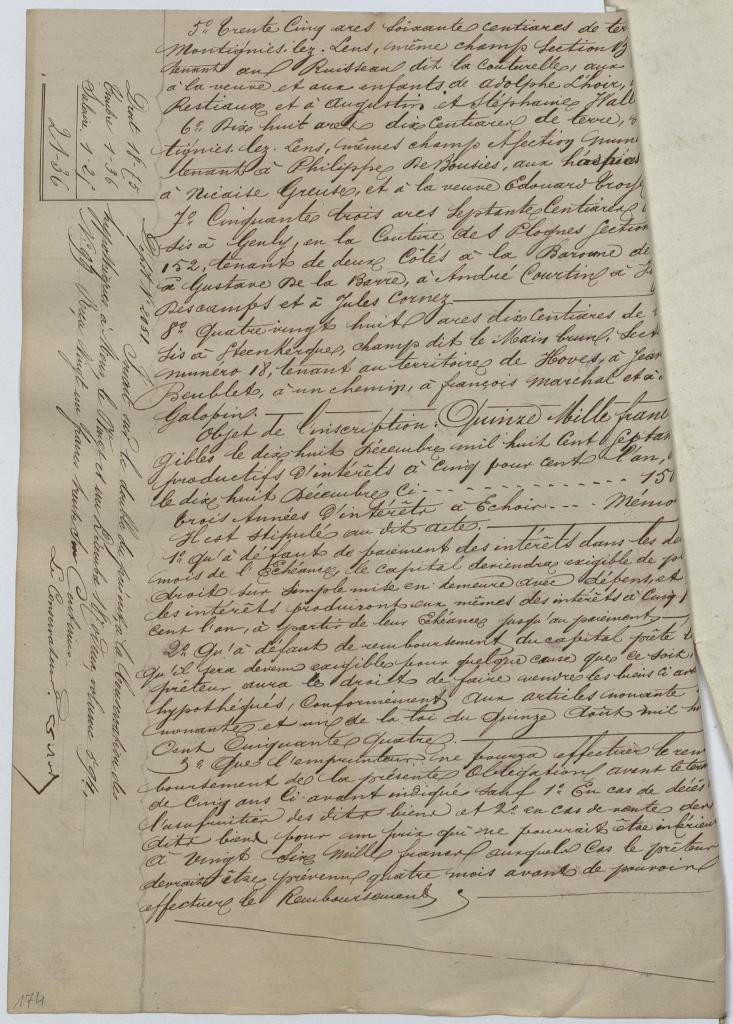 5° Trente Cinq ares Soixante centiares de ter
Montignies-lez-Lens, même champ Section B
tenant au Ruisseau dit la Couturelle, aux
à la veuve et aux enfants de adolphe Lhoir,
Restiaux et à Augustin et Stéphanie Hall
6° Dix huit ares dix Centiares de terre,
tignies-lez-Lens, mêmes champ et section num
tenant à Philippe De Bousies, aux
à Nicaise Greuse, et à la veuve Edouard
7° Cinquante trois ares Septante Centiares
Sis à Genly, en la Couture des Plognes Section
152, tenant de deux Cotés à la Baronne de
à Gustave De la Barre, à André Courtin à
Descamps et à Jules Cornez
8° Quatre vingt huit ares dix Centiares de
Sis à Steenkerque, champ dit le Main brun, Sect
numero 18, tenant au territoire de Hoves, à Jean
Beublet, à un chemin, à françois Marchal et à
Galopin.
Objet de l'inscription: Quinze Mille fran
gibles le dix huit Décembre mil huit Cent Septan
productifs d'intérêts à Cinq pour cent l'an,
le dix huit Décembre Ci - - - - 150
trois Années d'intérêts à Echoir - - - Mémo
Il est stipulé au dit acte.
1° Qu'à défaut de paiement des intérêts dans les de
mois de l'Echéance, le capital deviendra exigible de pl
droit sur simple mise en demeure avec dépens, et
les intérêts produiront eux mêmes des intérêts à Cinq p
cent l'an, à partir de leur Echéance jusqu'au paiement
2° Qu'à défaut de remboursement du capital prêté
qu'il sera devenu exigible pour quelque cause que ce soit,
prêteur aura le droit de faire vendre les biens Ci av
hypothéqués, Conformément aux articles nonante
nonante et un de la loi du Quinze Août mil h
Cent Cinquante Quatre.
3° Que l'emprunteur ne pourra effectuer le rem
boursement de la présente Obligation avant le term
de Cinq ans Ci-avant indiqué Sauf 1° En cas de décès
l'usufruitier des dits biens et 2° en cas de vente des
dits biens pour un prix qui ne pourrait être inférieur
à vingt Six mille francs auxquels Cas le prêteur
devrait être prévenu quatre mois avant de pouvoir
effectuer le Remboursement
Dépôt N° 2051
Inscrit sur le double du présent à la Conservation des
hypothèques à Mons, le Vingt et un Décembre
N° 99 Reçu Vingt un francs trente Six Centimes
Le Conservateur
Timbre 1-36
Salaire
21-36
174